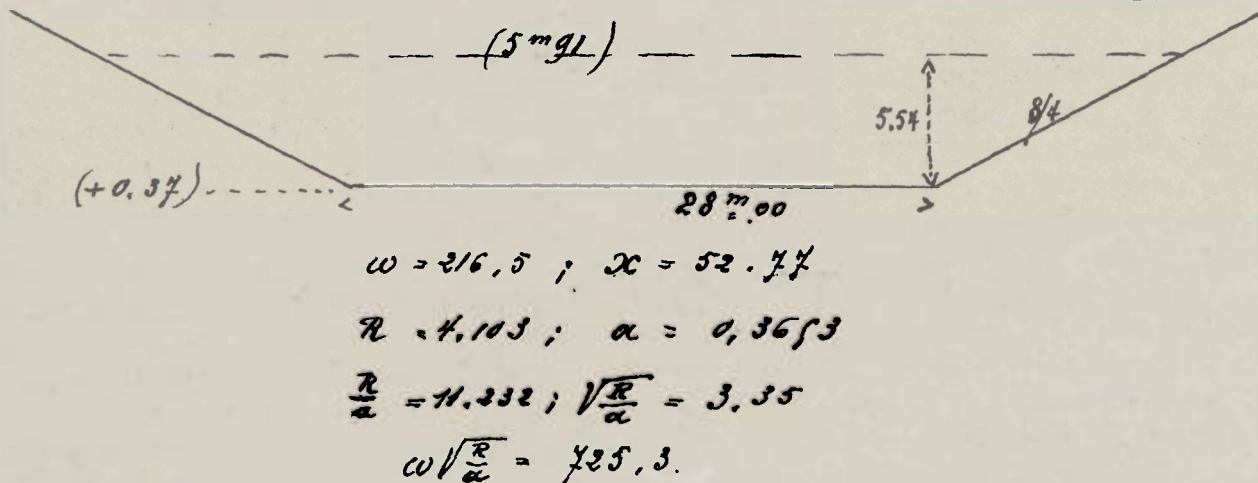 (5 m 91)
5.54
8/4
(+0.37)
28 m.00
ω = 216,5 ; X = 52.77
R = 4,103 ; α = 0,3653
R/α = 11.232 ; √R/α = 3.35
ω√R/α = 725,3.